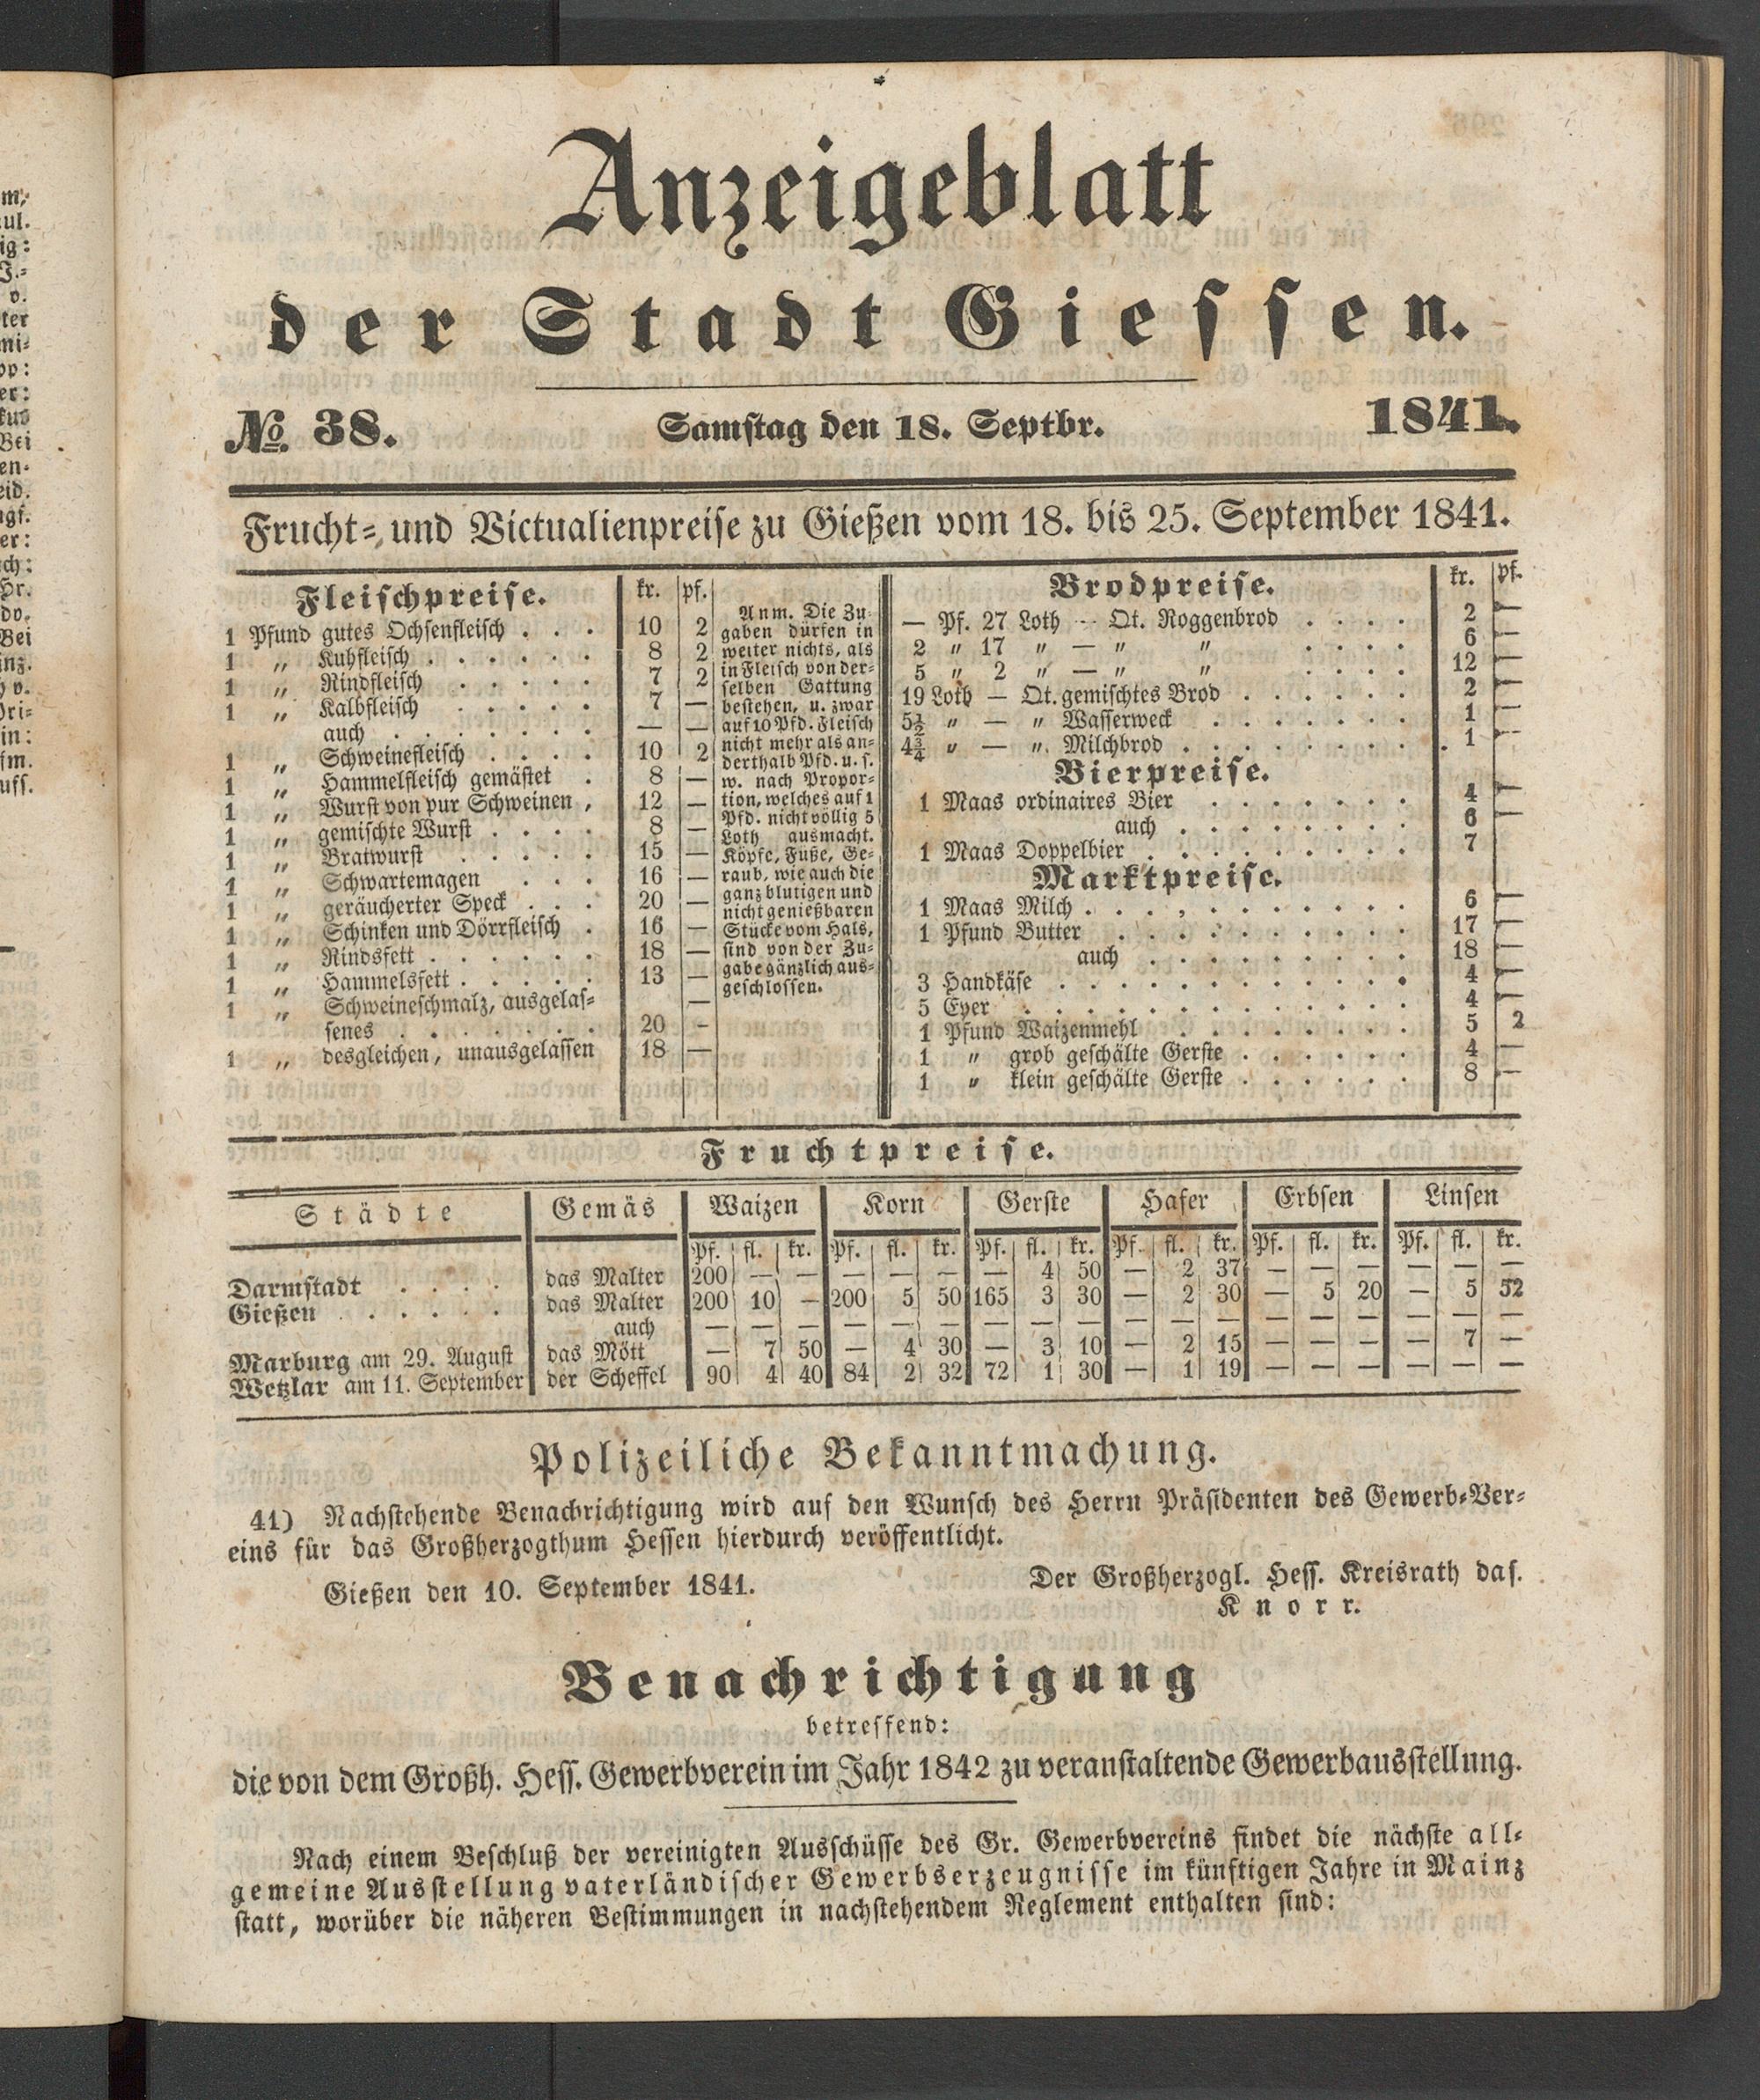 Anzeigeblatt
der Stadt Giessen.
№ 38. Samstag den 18. Septbr. 1841.
Frucht- und Victualienpreise zu Gießen vom 18. bis 25. September 1841.
Fleischpreise. kr. pf.
1 Pfund gutes Ochsenfleisch . . . 10 2
1 „ Kuhfleisch . . . . . . 8 2
1 „ Rindfleisch . . . . . 7 2
1 „ Kalbfleisch . . . . . 7 —
auch . . . . . . . — —
1 „ Schweinefleisch . . . . 10 2
1 „ Hammelfleisch gemästet . 8 —
1 „ Wurst von pur Schweinen , 12 —
1 „ gemischte Wurst . . . . 8 —
1 „ Bratwurst . . . . . 15 —
1 „ Schwartemagen . . . 16 —
1 „ geräucherter Speck . . . 20 —
1 „ Schinken und Dörrfleisch . 16 —
1 „ Rindsfett . . . . . . 18 —
1 „ Hammelsfett . . . . . 13 —
1 „ Schweineschmalz, ausgelas- —
senes . . . . . . . 20 -
1 „ desgleichen, unausgelassen 18 —
Anm. Die Zu-
gaben dürfen in
weiter nichts, als
in Fleisch von der-
selben Gattung
bestehen, u. zwar
auf 10 Pfd. Fleisch
nicht mehr als an-
derthalb Pfd. u. s.
w. nach Propor-
tion, welches auf 1
Pfd. nicht völlig 5
Loth ausmacht.
Köpfe, Füße, Ge-
raub, wie auch die
ganz blutigen und
nicht genießbaren
Stücke vom Hals,
sind von der Zu-
gabe gänzlich aus-
geschlossen.
Brodpreise. kr. pf.
— Pf. 27 Loth — Qt. Roggenbrod . . . . 2 —
2 „ 17 „ — „ „ . . . . 6 —
5 „ 2 „ — „ „ . . . . 12 —
19 Loth — Qt. gemischtes Brod . . . . . . 2 —
5½ „ — „ Wasserweck . . . . . . . 1 —
4¾ „ — „ Milchbrod . . . . . . . . . 1 —
Bierpreise.
1 Maas ordinaires Bier . . . . . . . 4 —
auch . . . . . . . . 6 —
1 Maas Doppelbier . . . . . . . . . 7
Marktpreise.
1 Maas Milch . . . , . . . . . . . 6 —
1 Pfund Butter . . . . . . . . . 17 —
auch . . . . . . . . 18 —
3 Handkäse . . . . . . . . . . . 4 —
5 Eyer . . . . . . . . . . . . 4 —
1 Pfund Waizenmehl . . . . . . . . 5 2
1 „ grob geschälte Gerste . . . . . . 4 —
1 „ klein geschälte Gerste . . . . . . 8 —
Fruchtpreise.
Städte Gemäs Waizen Korn Gerste Hafer Erbsen Linsen
Pf. fl. kr. Pf. fl. kr. Pf. fl. kr. Pf. fl. kr. Pf. fl. kr. Pf. fl. kr.
Darmstadt . . . . das Malter 200 — — — — — — 4 50 — 2 37 — — — — — —
Gießen . . . . . . das Malter 200 10 — 200 5 50 165 3 30 — 2 30 — 5 20 — 5 52
auch — — — — — — — — — — — — — — — — — —
Marburg am 29. August das Mött — 7 50 — 4 30 — 3 10 — 2 15 — — — — 7 —
Wetzlar am 11. September der Scheffel 90 4 40 84 2 32 72 1 30 — 1 19 — — — — — —
Polizeiliche Bekanntmachung.
41) Nachstehende Benachrichtigung wird auf den Wunsch des Herrn Präsidenten des Gewerb-Ver-
eins für das Großherzogthum Hessen hierdurch veröffentlicht.
Gießen den 10. September 1841. Der Großherzogl. Hess. Kreisrath das.
Knorr.
Benachrichtigung
betreffend:
die von dem Großh. Hess. Gewerbverein im Jahr 1842 zu veranstaltende Gewerbausstellung.
Nach einem Beschluß der vereinigten Ausschüsse des Gr. Gewerbvereins findet die nächste all-
gemeine Ausstellung vaterländischer Gewerbserzeugnisse im künftigen Jahre in Mainz
statt, worüber die näheren Bestimmungen in nachstehendem Reglement enthalten sind: